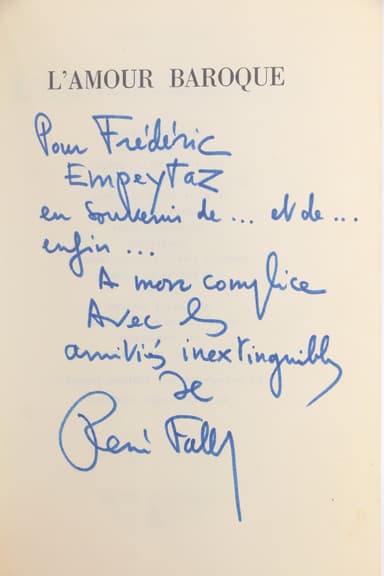 L'AMOUR BAROQUE
Pour Frédéric
Empeytaz
en souvenir de ... et de ...
enfin ...
A mon complice
Avec les
amitiés inextinguibles
de
René Fall